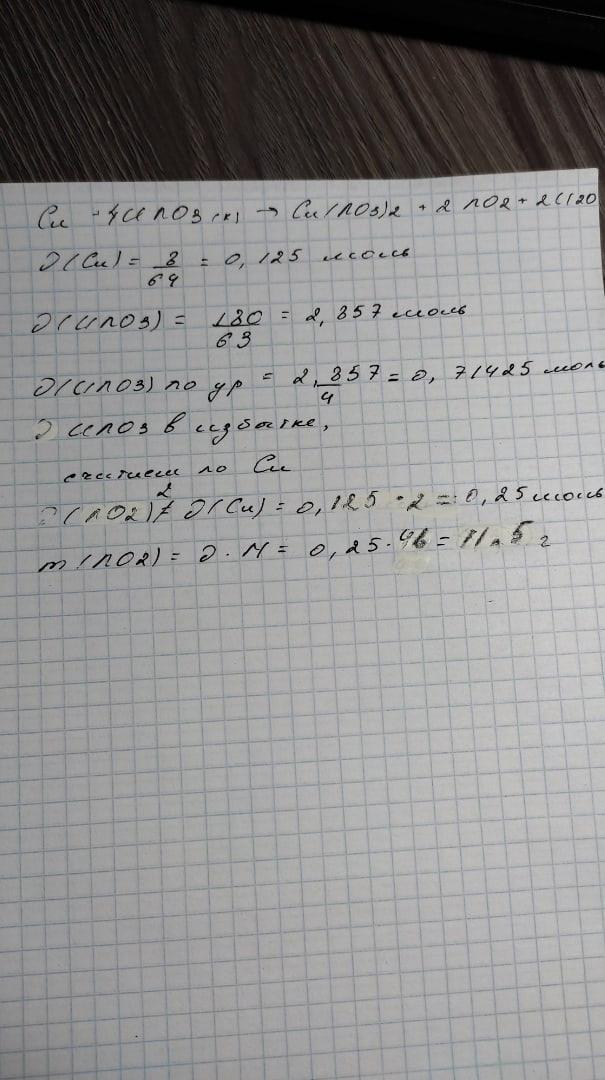 Cu + 4HNO3(к) → Cu(NO3)2 + 2NO2 + 2H2O
ν(Cu) = 8/64 = 0,125 моль
ν(HNO3) = 180/63 = 2,857 моль
ν(HNO3) по ур = 2,857/4 = 0,71425 моль
HNO3 в избытке,
считаем по Cu
ν(NO2) = 2ν(Cu) = 0,125 · 2 = 0,25 моль
m(NO2) = ν · M = 0,25 · 46 = 11,5 г